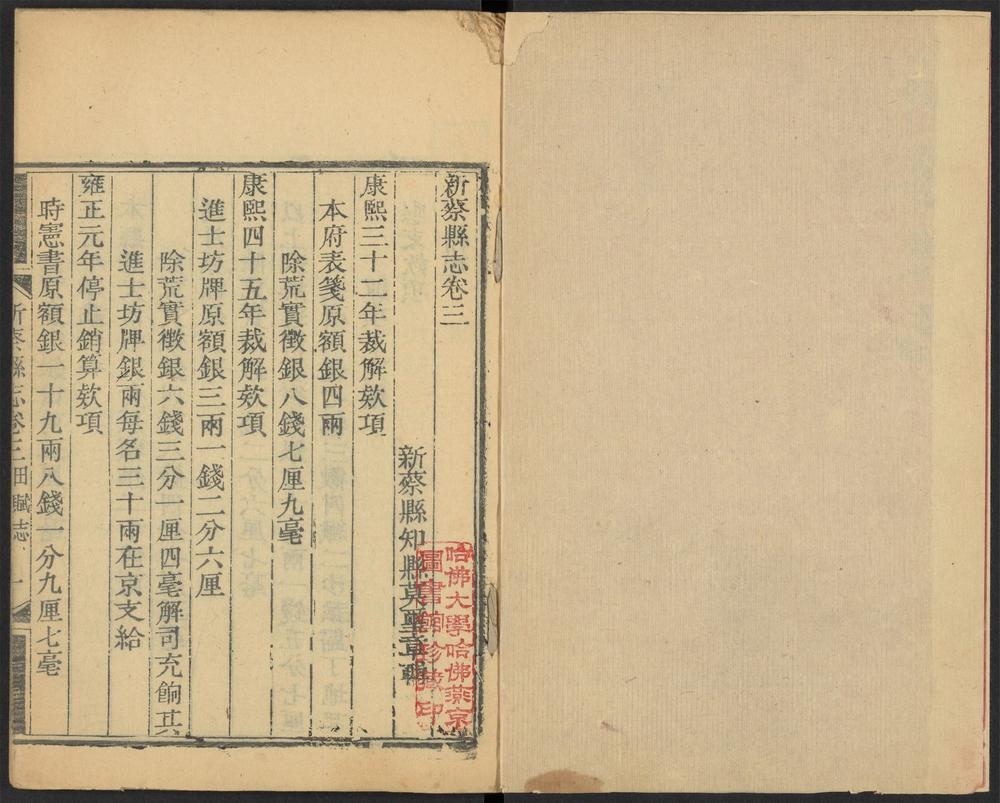 新蔡縣志卷三
新蔡縣知縣莫璽章
康熙三十二年裁解欵項
本府表箋原額銀四兩
除荒實徵銀八錢七厘九毫
康熙四十五年裁解欵項
進士坊牌原額銀三兩一錢二分六厘
除荒實徵銀六錢三分一厘四毫解司充餉其
進士坊牌銀兩每名三十兩在京支給
雍正元年停止銷算欵項
時憲書原額銀一十九兩八錢一分九厘七毫
新蔡縣志卷三田賦志 一
哈佛大學哈佛燕京
圖書館珍藏印